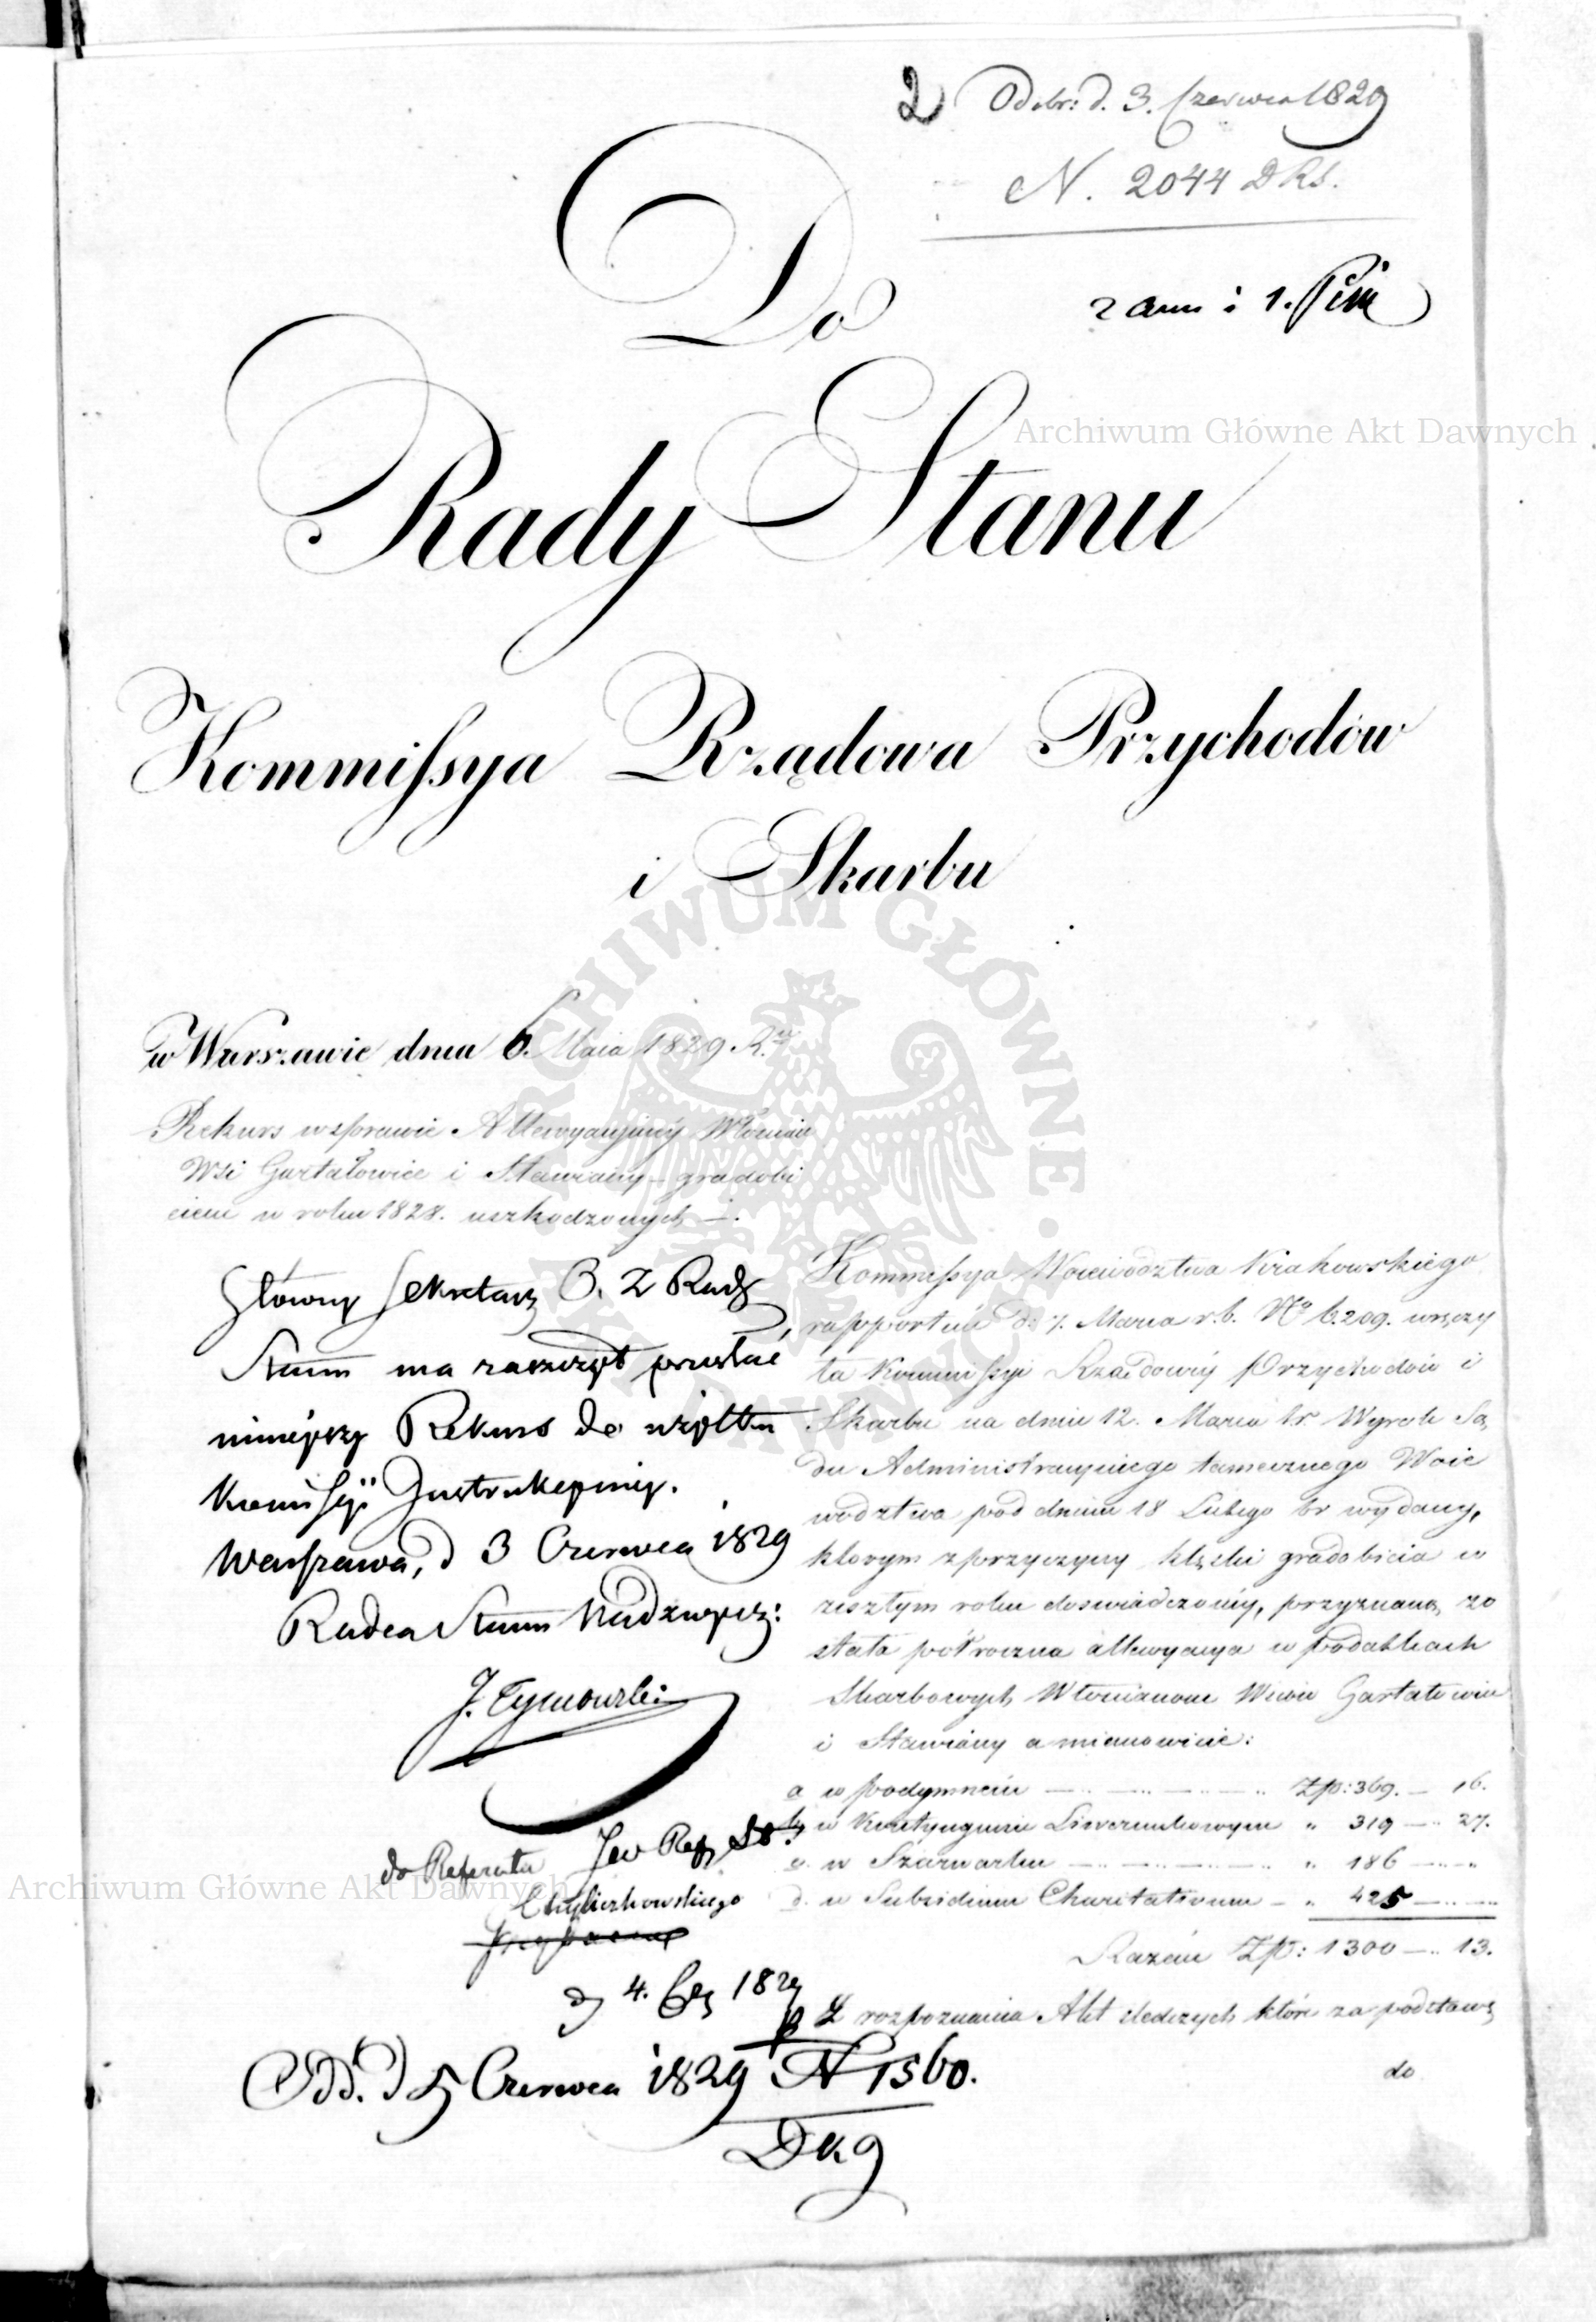 2 Odebr: d. 3. Czerwca 1829
N. 2044 DRS.
2 ann i 1.
Do
Archiwum Główne Akt Dawnych
Rady Stanu
Kommissya Rządowa Przychodów
i Skarbu
ARCHIWUM GŁÓWNE
w Warszawie dnia 6. Maia 1829 R.
Rekurs w sprawie Allewyacyinéy Włościan
Wsi Gartatowice i Stawiany gradobi
ciem w roku 1828. uszkodzonych —.
Główny Sekretarz Rady
Stanu ma zaszczyt przesłać
ninieyszy Rekurs do użytku
Kommissyi Instrukcyiney.
Warszawa, d 3 Czerwca 1829
Radca Stanu Nadzwycz:
J. Tymowski
do Referatu Ref
Chyliczkowskiego
d 4. 1829
Odd. d 5 Czerwca 1829 N 1560.
Kommissya Woiewództwa Krakowskiego
rapportem d. 7. Marca r.b. No 6209. wręczy
ła Kommissyi Rządowéy Przychodów i
Skarbu na dniu 12. Marca br Wyrok Są,
du Administracyinego tamecznego Woie
wództwa pod dniem 18 Lutego br wydany,
którym z przyczyny klęski gradobicia w
zeszłym roku doswiadczonéy, przyznaną zo
stała półroczna allewyacya w podatkach
Skarbowych Włościanom Wsiów Gartatowice
i Stawiany a mianowicie:
a w podymném — Zp: 369. — 16.
b w Kontyngensie Liwerunkowym " 319 — 27.
c. w Szarwarku — " 186 — "
d. w Subsidium Charitativum — " 425 —
Razem Zp: 1300 — 13.
Z rozpoznania Akt sledczych które za podstawę
do
Archiwum Główne Akt Dawnych